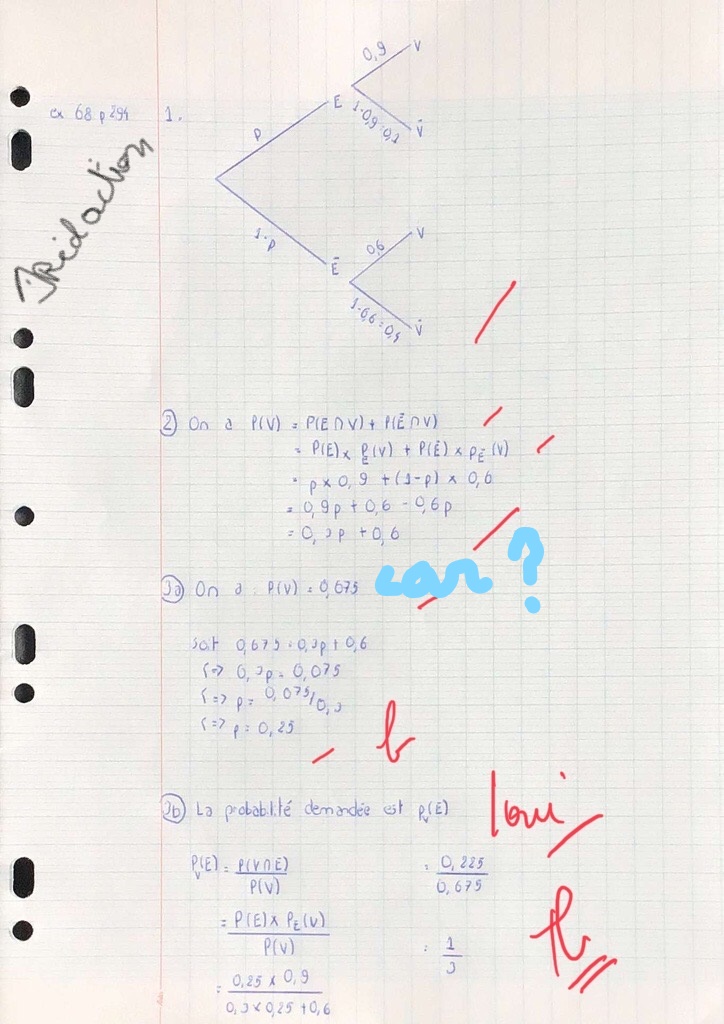 ex 68 p 294
1.
0,9 V
p E
1-0,9=0,1 V̄
1-p Ē
0,6 V
1-0,6=0,4 V̄
Rédaction
2) On a P(V) = P(E∩V) + P(Ē∩V)
= P(E) × P_E(V) + P(Ē) × P_Ē(V)
= p × 0,9 + (1-p) × 0,6
= 0,9p + 0,6 - 0,6p
= 0,3p + 0,6
3a) On a : P(V) = 0,675 car ?
soit 0,675 = 0,3p + 0,6
<=> 0,3p = 0,075
<=> p = 0,075/0,3
<=> p = 0,25
b
3b) La probabilité demandée est P_V(E) oui
P_V(E) = P(V∩E)/P(V)
= P(E) × P_E(V)/P(V)
= 0,25 × 0,9/0,3 × 0,25 + 0,6
= 0,225/0,675
= 1/3
tb